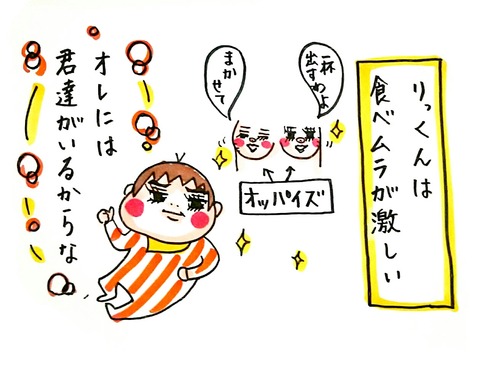 りっくんは
食べムラが激しい
一杯
出すわよ
まかせて
オッパイズ
オレには
君達がいるからな